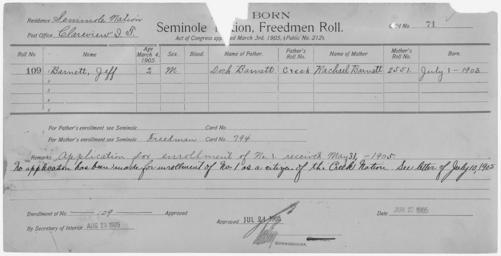 BORN
Residence Seminole Nation
Seminole Nation, Freedmen Roll. Card No. 71
Post Office, Clareview I.T.
Act of Congress approved March 3rd, 1905, (Public No. 212).
Roll No. Name Age March 4, 1905 Sex. Blood. Name of Father. Father's Roll No. Name of Mother Mother's Roll No. Born.
109 Barnett, Jeff 2 M Dock Barnett Creek Rachael Barnett 2551 July 1-1903
For Father's enrollment see Seminole Card No.
For Mother's enrollment see Seminole Freedman Card No. 794
Remarks Application for enrollment of No. 1 received May 31, -1905.
No application has been made for enrollment of No 1 as a citizen of the Creek Nation. See letter of July 10, 1905
Enrollment of No. 109 Approved
Approved JUL 24 1905
Date JUN 1905
By Secretary of Interior AUG 1905